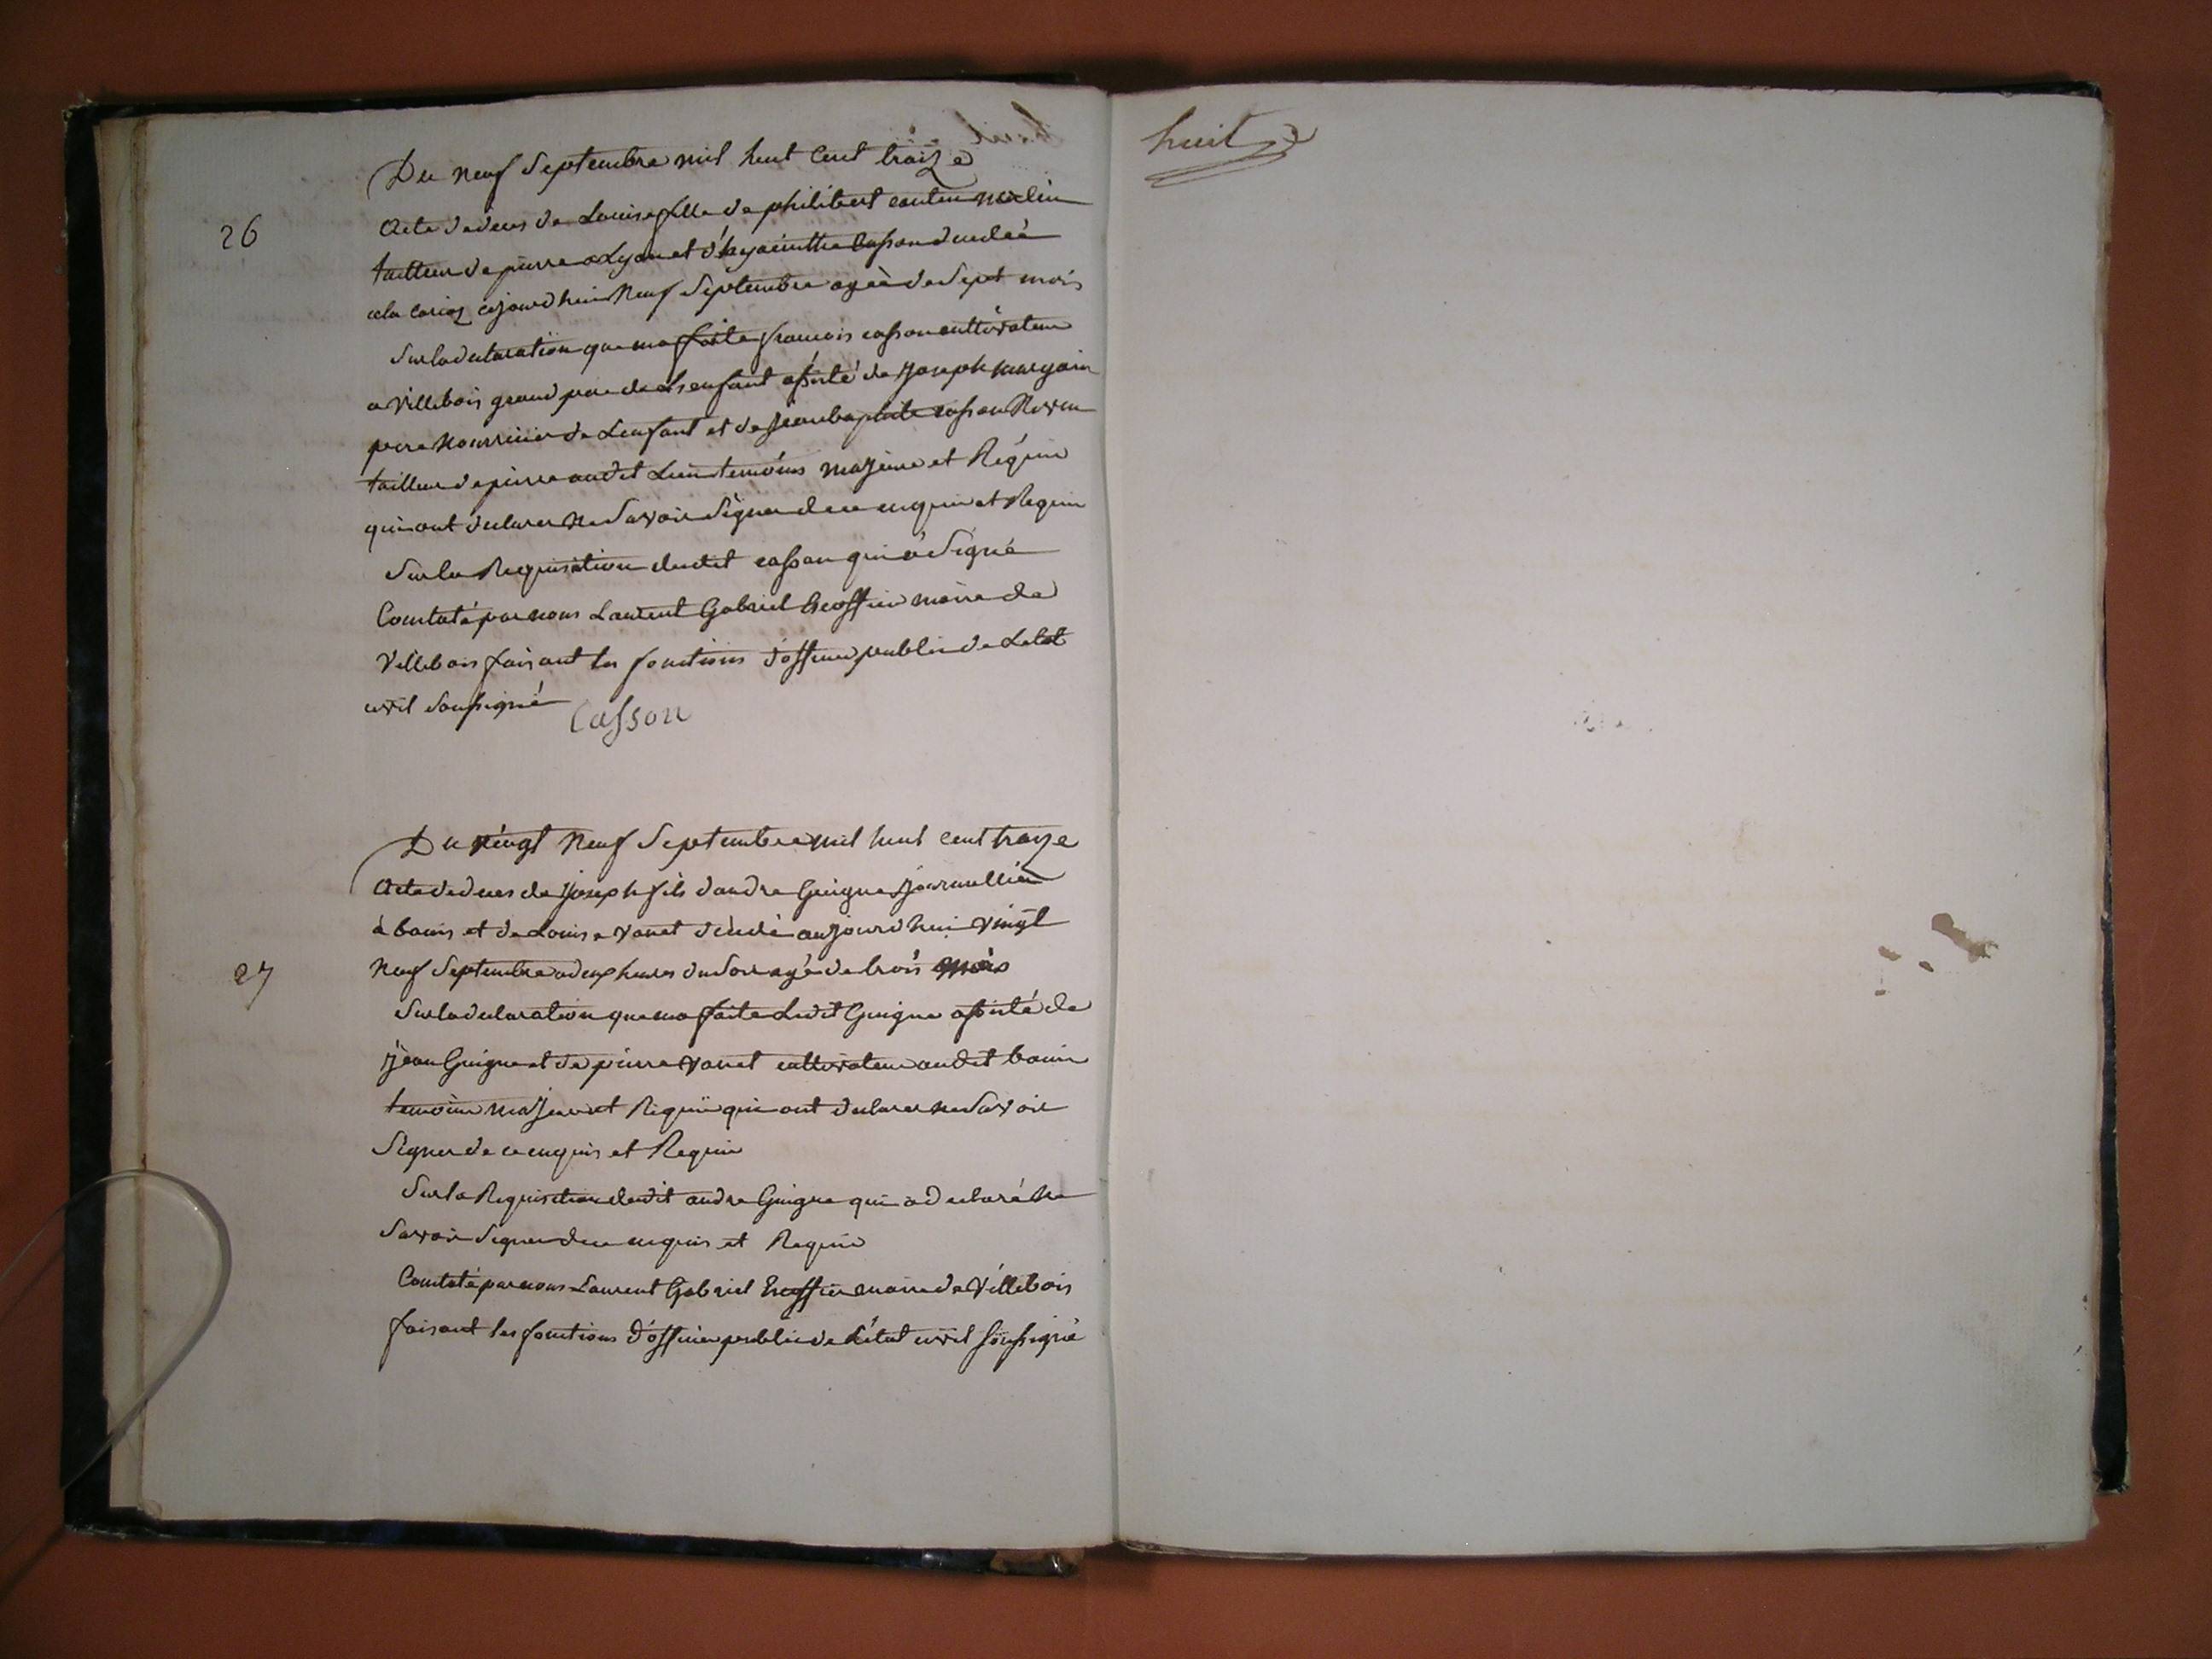 Du neuf Septembre mil huit Cent traize
26
Acte de deces de Louise fille de philibert
tailleur de pierre a Lyon et d'hyacinthe Casson decedeé
cejourd'hui Neuf Septembre ageè de Sept mois
Sur la declaration que ma faite francois casson cultivateur
a Villebois grand pere de Lenfant assisté de joseph
pere Nourricier de Lenfant et de jean baptiste casson
tailleur de pierre audit Lieu temoins majeurs et Requis
qui ont declarer ne Savoir Signer de ce enquis et Requis
Sur la Requisition dudit casson qui à Signé
Constaté par nous Laurent Gabriel maire de
Villebois faisant les fonctions d'officier public de Letat
civil soussigné
Casson
Du vingt Neuf Septembre mil huit cent traize
Acte de deces de joseph fils d'andre Guigue journallier
à bouis et de Louise vanet décédé aujourd'hui vingt
27
Neuf Septembre a deux heures du Soir agé de trois mois
Sur la declaration que ma faite Ledit Guigue assisté de
jean Guigue et de pierre vanet cultivateur audit bouis
temoins majeur et Requis qui ont declarer ne Savoir
Signer de ce enquis et Requis
Sur la Requisition dudit andre Guigue qui a declaré ne
Savoir Signer de ce enquis et Requis
Constaté par nous Laurent Gabriel maire de Villebois
faisant les fonctions d'officier public de L'état civil soussigné
huit